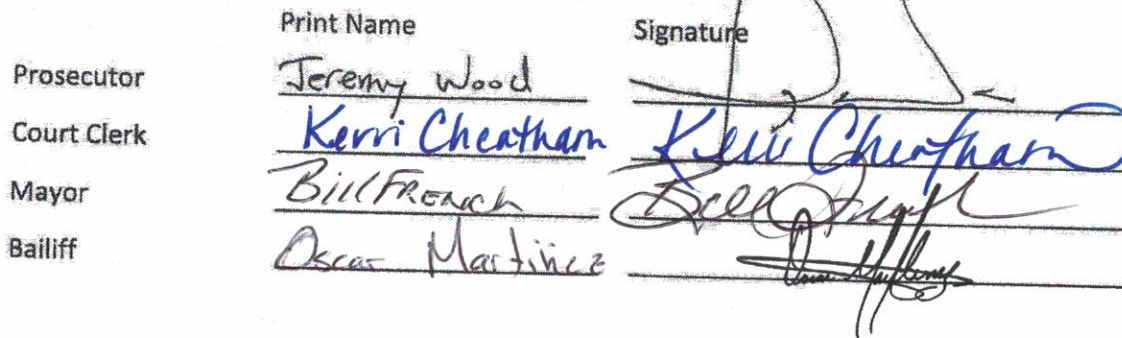 Print Name Signature
Prosecutor Jeremy Wood
Court Clerk Kerri Cheatham Kerri Cheatham
Mayor Bill FRENCH Bill French
Bailiff Oscar Martinez